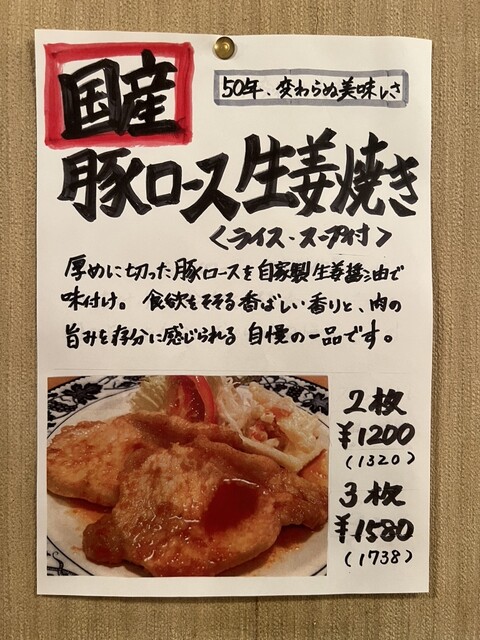 国産
50年、変わらぬ美味しさ
豚ロース生姜焼き
〈ライス・スープ付〉
厚めに切った豚ロースを自家製生姜醤油で
味付け。食欲をそそる香ばしい香りと、肉の
旨みを存分に感じられる自慢の一品です。
2枚
¥1200
(1320)
3枚
¥1580
(1738)